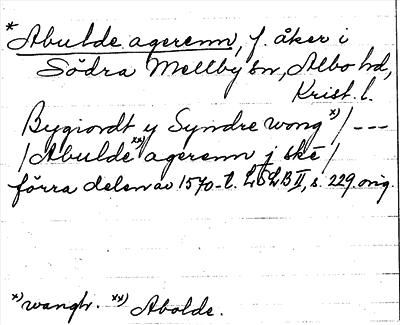 * Abulde agerenn, f. åker i
Södra Mellby sn, Albo hd,
Krist. l.
Bygiordt y Syndre wong x) / ---
/ Abulde xx) agerenn j ske /
förra delen av 1570-t. LSLB II, s. 229. orig.
x) wangh. xx) Abolde.